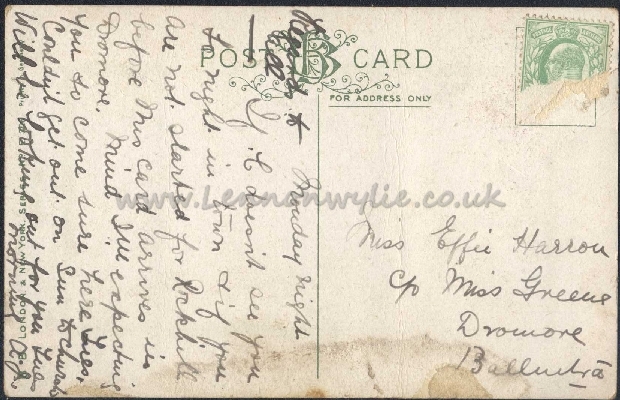 POST CARD
FOR ADDRESS ONLY
Monday night
If I doesn't see you
to night in town & if you
are not started for Rockhill
before this card arrives in
Dromore. Mind I'll expecting
you to come sure here Tues.
Couldn't get out on Sun to church
Will be looking out for you Tues
morning
Miss Effie Harron
c/o Miss Greene
Dromore
Ballintra
www.Lennonwylie.co.uk
LONDON & NEW YORK